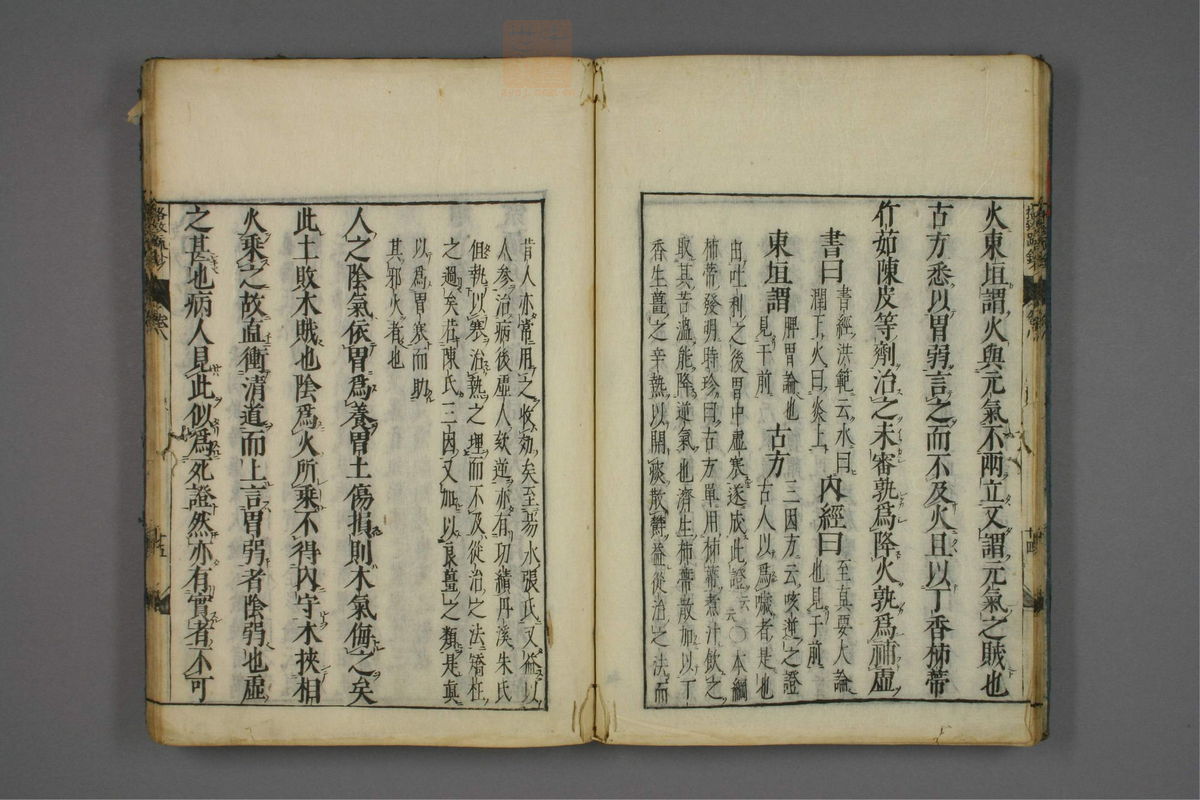 火東垣謂火與元氣不兩立又謂元氣之賊也
古方悉以胃弱言之而不及火且以丁香柿蒂
竹茹陳皮等劑治之未審孰爲降火孰爲補虛
書曰 書經洪範云水曰
潤下火曰炎上 內經曰 至真要大論
也見于前
東垣謂 脾胃論也
見于前 古方 三因方云咳逆之證
古人以爲噦者是也
由吐利之後胃中虛寒遂成此證云云〇本綱
柿蒂發明時珍曰古方單用柿蒂煮汁飲之
取其苦溫能降逆氣也濟生柿蒂散加以丁
香生薑之辛熱以開痰散鬱蓋從治之法而
昔人亦常用之收効矣至易水張氏又益以
人參治病後虛人欬逆亦有功績丹溪朱氏
但執以寒治熱之理而不及從治之法矯枉
之過矣若陳氏三因又加以良薑之類是真
以爲胃寒而助
其邪火者也
人之陰氣依胃爲養胃土傷損則木氣侮之矣
此土敗木賊也陰爲火所乘不得內守木挾相
火乘之故直衝清道而上言胃弱者陰弱也虛
之甚也病人見此似爲死證然亦有實者不可
十四
十五